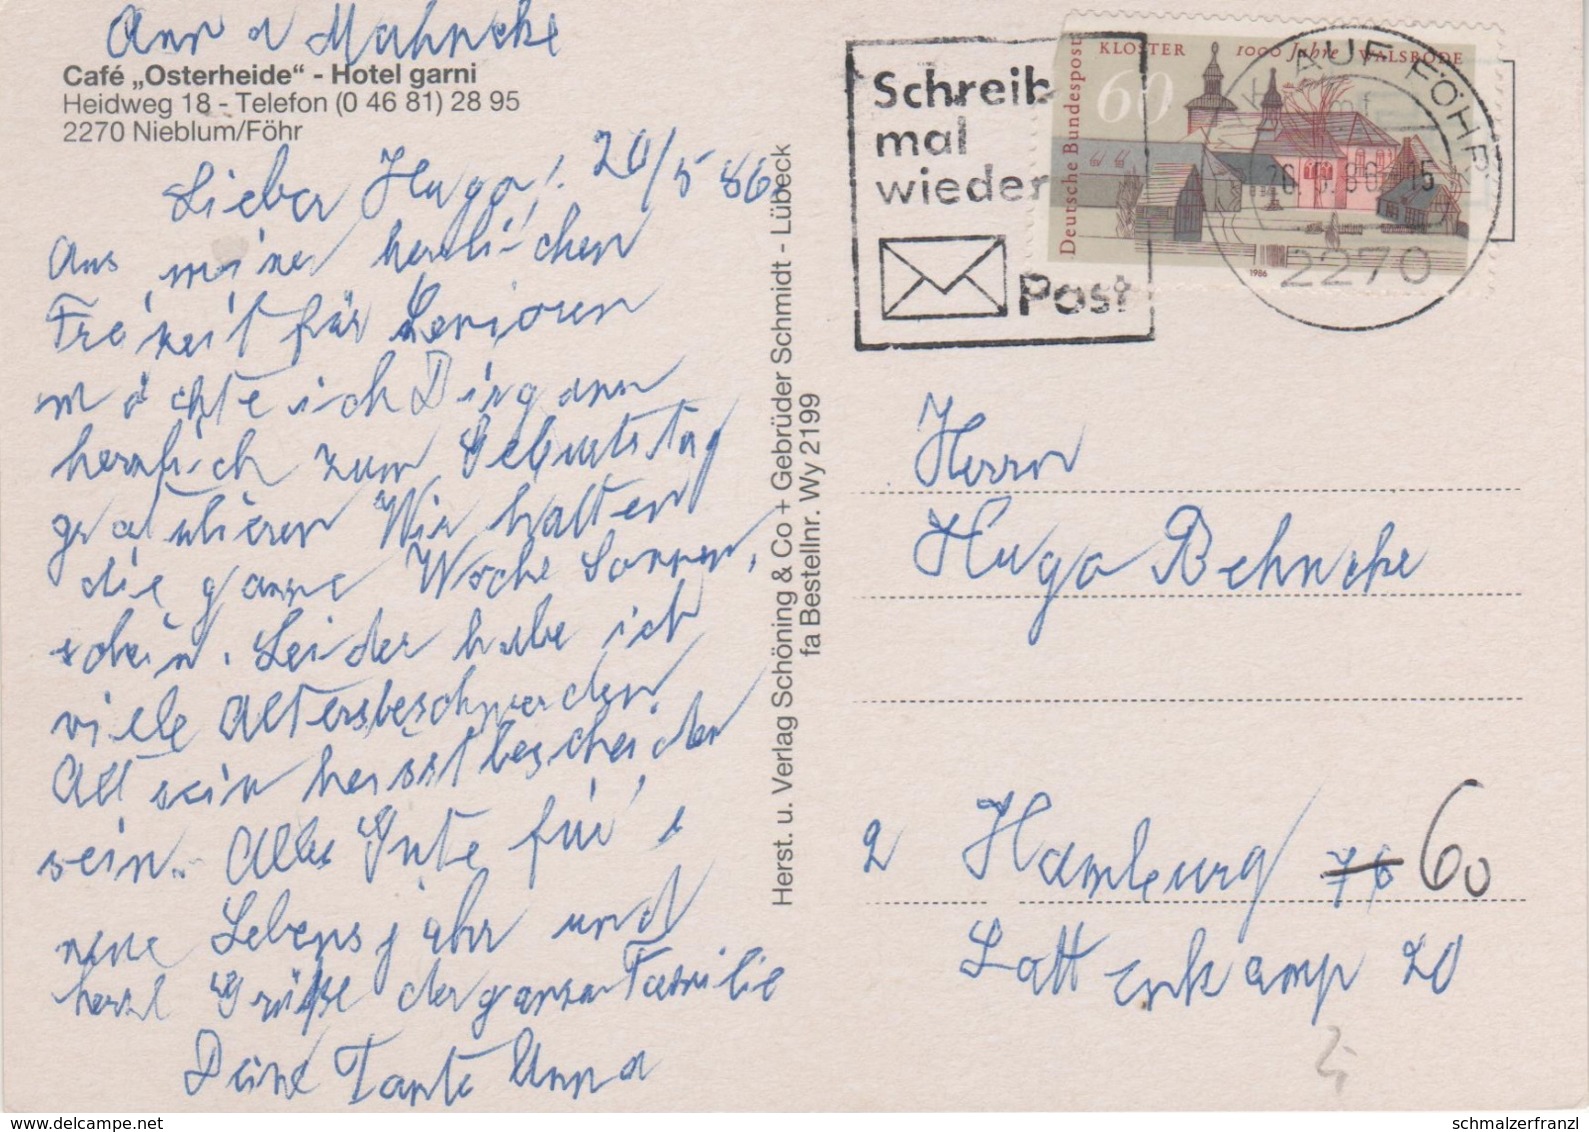 Anna Mahncke
Café „Osterheide“ - Hotel garni
Heidweg 18 - Telefon (0 46 81) 28 95
2270 Nieblum/Föhr
Lieber Hugo! 20/5 86
Aus meiner herrlichen
Freizeit für Senioren
möchte ich Dir ganz
herzlich zum Geburtstag
gratulieren Wir hatten
die ganze Woche Sonnen,
schein. Leider habe ich
viele Altersbeschwerden
Alt sein heisst bescheiden
sein. Alles Gute für's
neue Lebensjahr und
herzl Grüße der ganzen Familie
Deine Tante Anna
Herst. u. Verlag Schöning & Co + Gebrüder Schmidt - Lübeck
fa Bestellnr. Wy 2199
Schreib
mal
wieder
Post
Deutsche Bundespost
KLOSTER 1000 Jahre WALSRODE
60
1986
AUF FÖHR
2270
Herrn
Hugo Behncke
2 Hamburg 76 60
Lattenkamp 20
www.schmalzerfranzl